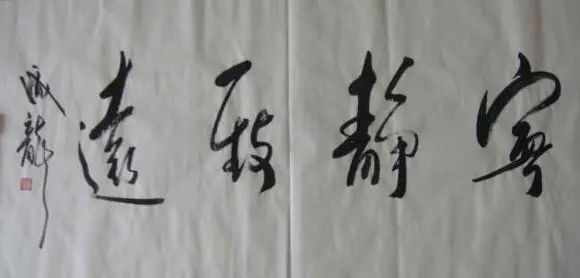 寧靜致遠
成龍